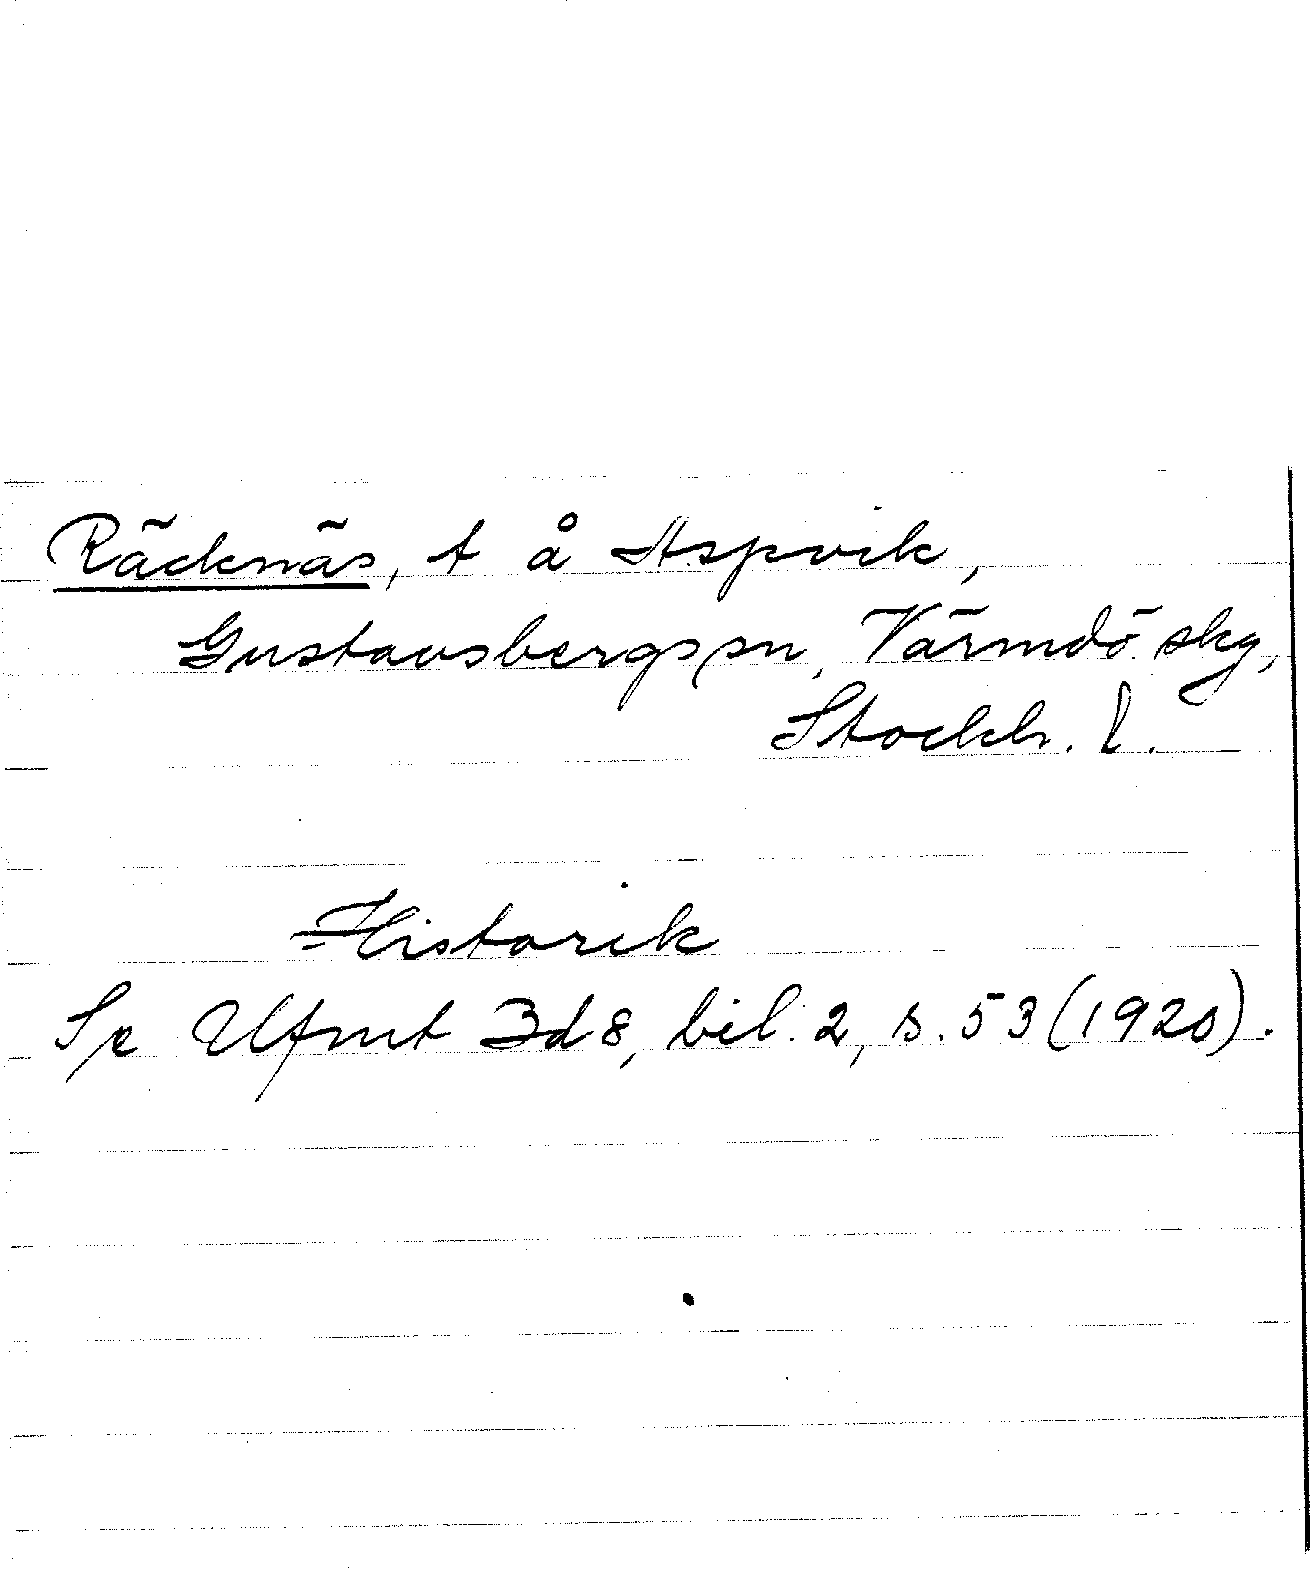 Räcknäs, t å Aspvik,
Gustavsbergs sn, Värmdö skg,
Stockh. l.
Historik
Se Ufmt 3d8, bil. 2, s. 53 (1920).